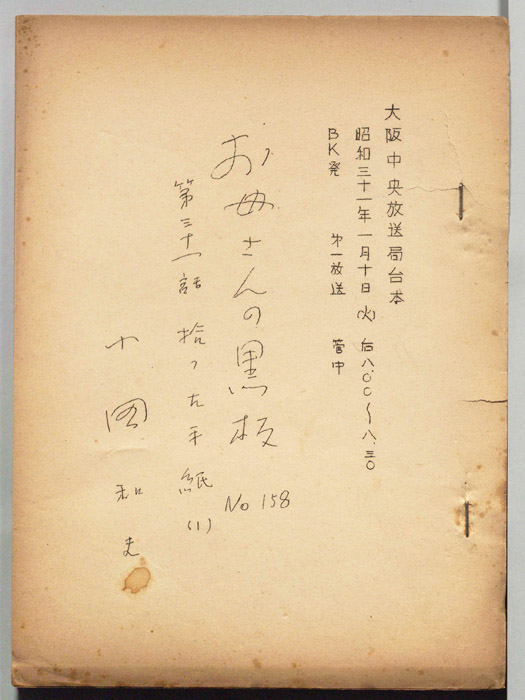 大阪中央放送局台本
昭和三十一年一月十日(火)后八.〇〇〜八.三〇
BK発 第一放送 管中
お母さんの黒板 No 158
第三十一話 拾った手紙(1)
国 和夫